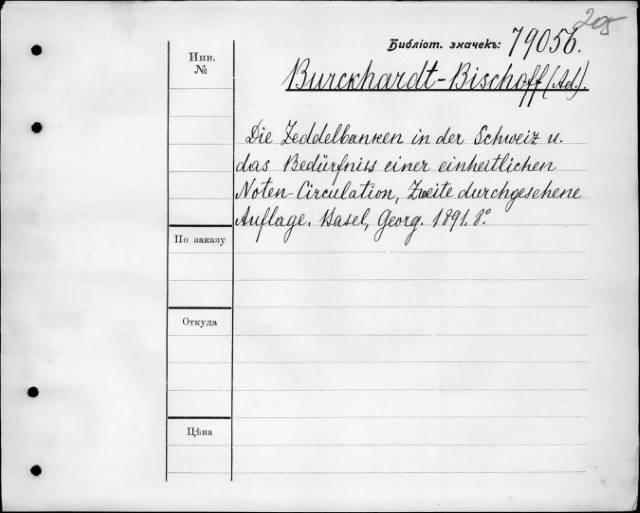 205
Библіот. значекъ: 79056.
Инв.
№
Burckhardt-Bischoff (Ad.).
Die Zeddelbanken in der Schweiz u.
das Bedürfniss einer einheitlichen
Noten-Circulation, Zweite durchgesehene
Auflage. Basel, Georg. 1891. 8º
По заказу
Откуда
Цѣна